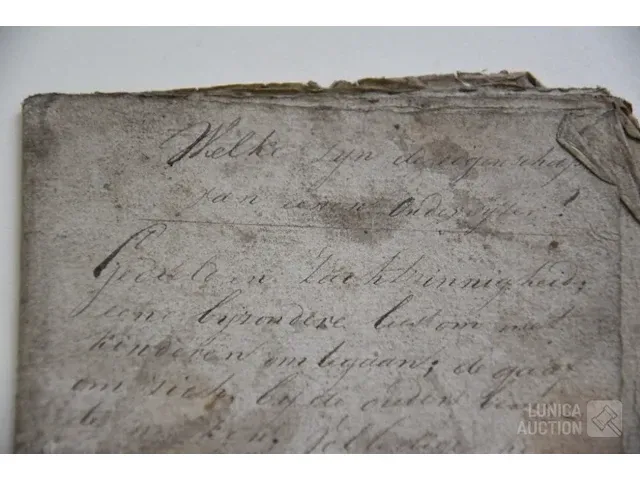 Welke zyn de eigenschap
van eenen Onderwijzer?
Gedult en Zachtzinnigheid;
eene bijzondere lust om met
kinderen om te gaan; de gaaf
om zich bij de ouders
te maken.
LUNICA
AUCTION